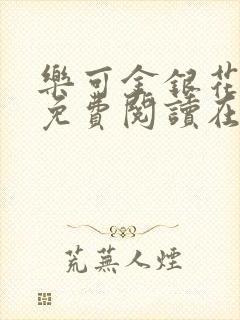 樂可金銀花
免費閱讀在
荒蕪人煙